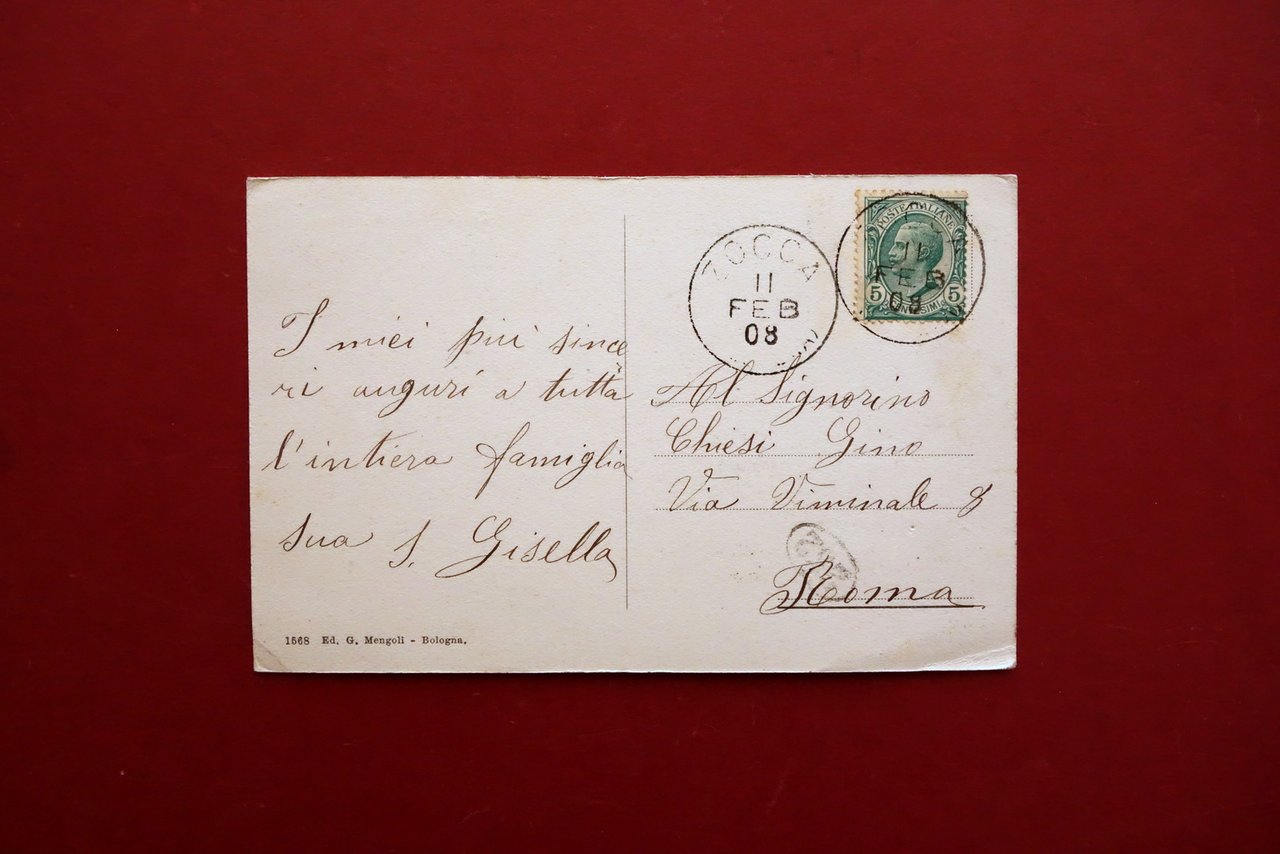 I miei più since
ri auguri a tutta
l'intiera famiglia
sua S. Gisella
1568 Ed. G. Mengoli - Bologna.
ZOCCA
11
FEB
08
POSTE ITALIANE
11
FEB
08
5 CENTESIMI 5
Al Signorino
Chiesi Gino
Via Viminale 8
Roma